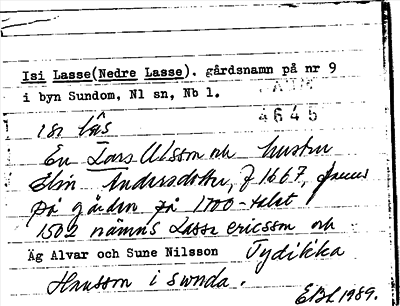 Isi Lasse(Nedre Lasse). gårdsnamn på nr 9
i byn Sundom, Nl sn, Nb l.
4645
isi las
En Lars Olsson och hustru
Elin Andersdotter, f 1667, fanns
på gården på 1700-talet
1502 nämns Lasse ericsson och
Äg Alvar och Sune Nilsson Tydikka
Hansson i Swnda.
1989.